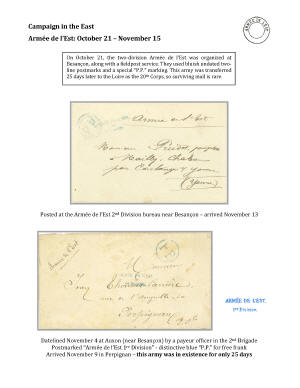 Campaign in the East
Armée de l'Est: October 21 – November 15
ARMÉE DE L'EST.
On October 21, the two-division Armée de l'Est was organized at
Besançon, along with a fieldpost service. They used bluish undated two-
line postmarks and a special "P.P." marking. This army was transferred
25 days later to the Loire as the 20th Corps, so surviving mail is rare.
Armée de l'Est
Monsieur
à Mailly
par
(Yonne)
Posted at the Armée de l'Est 2nd Division bureau near Besançon – arrived November 13
Armée de l'Est
Monsieur
rue de l'
Perpignan
ARMÉE DE L'EST.
1re Division.
Datelined November 4 at Annon (near Besançon) by a payeur officer in the 2nd Brigade
Postmarked "Armée de l'Est 1re Division" - distinctive blue "P.P." for free frank
Arrived November 9 in Perpignan – this army was in existence for only 25 days